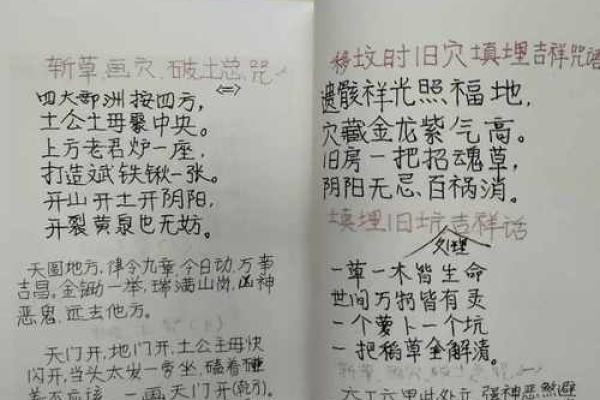 斩草画穴、破土总咒
<二>
四大部洲按四方，
土公土母聚中央。
上方老君炉一座，
打造斌铁锹一张。
开山开土开阴阳，
开裂黄泉也无妨。
天圆地方，律令九章，今日动，万事
吉昌。金锄一举，瑞满山岗，凶神
恶鬼，远去他方。
天门开，地门开，土公土母快
闪开，当头太岁一旁坐，磕着碰
着不应该，一画天门开(乾方)，
移坟时旧穴填埋吉祥咒语
遗骸祥光照福地，
穴藏金龙紫气高。
旧房一把招魂草，
阴阳无忌、百祸消。
填埋旧坑吉祥话
处理
一草一木皆生命
世间万物皆有灵
一个萝卜一个坑
一把稻草全解清。
斩草、画穴、破土总咒
六丁六甲此处立 强神恶煞避